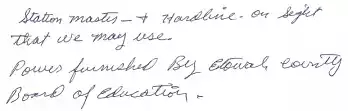 Station master - + Hardline - on sight
that we may use.
Power furnished By Etowah County
Board of Education.